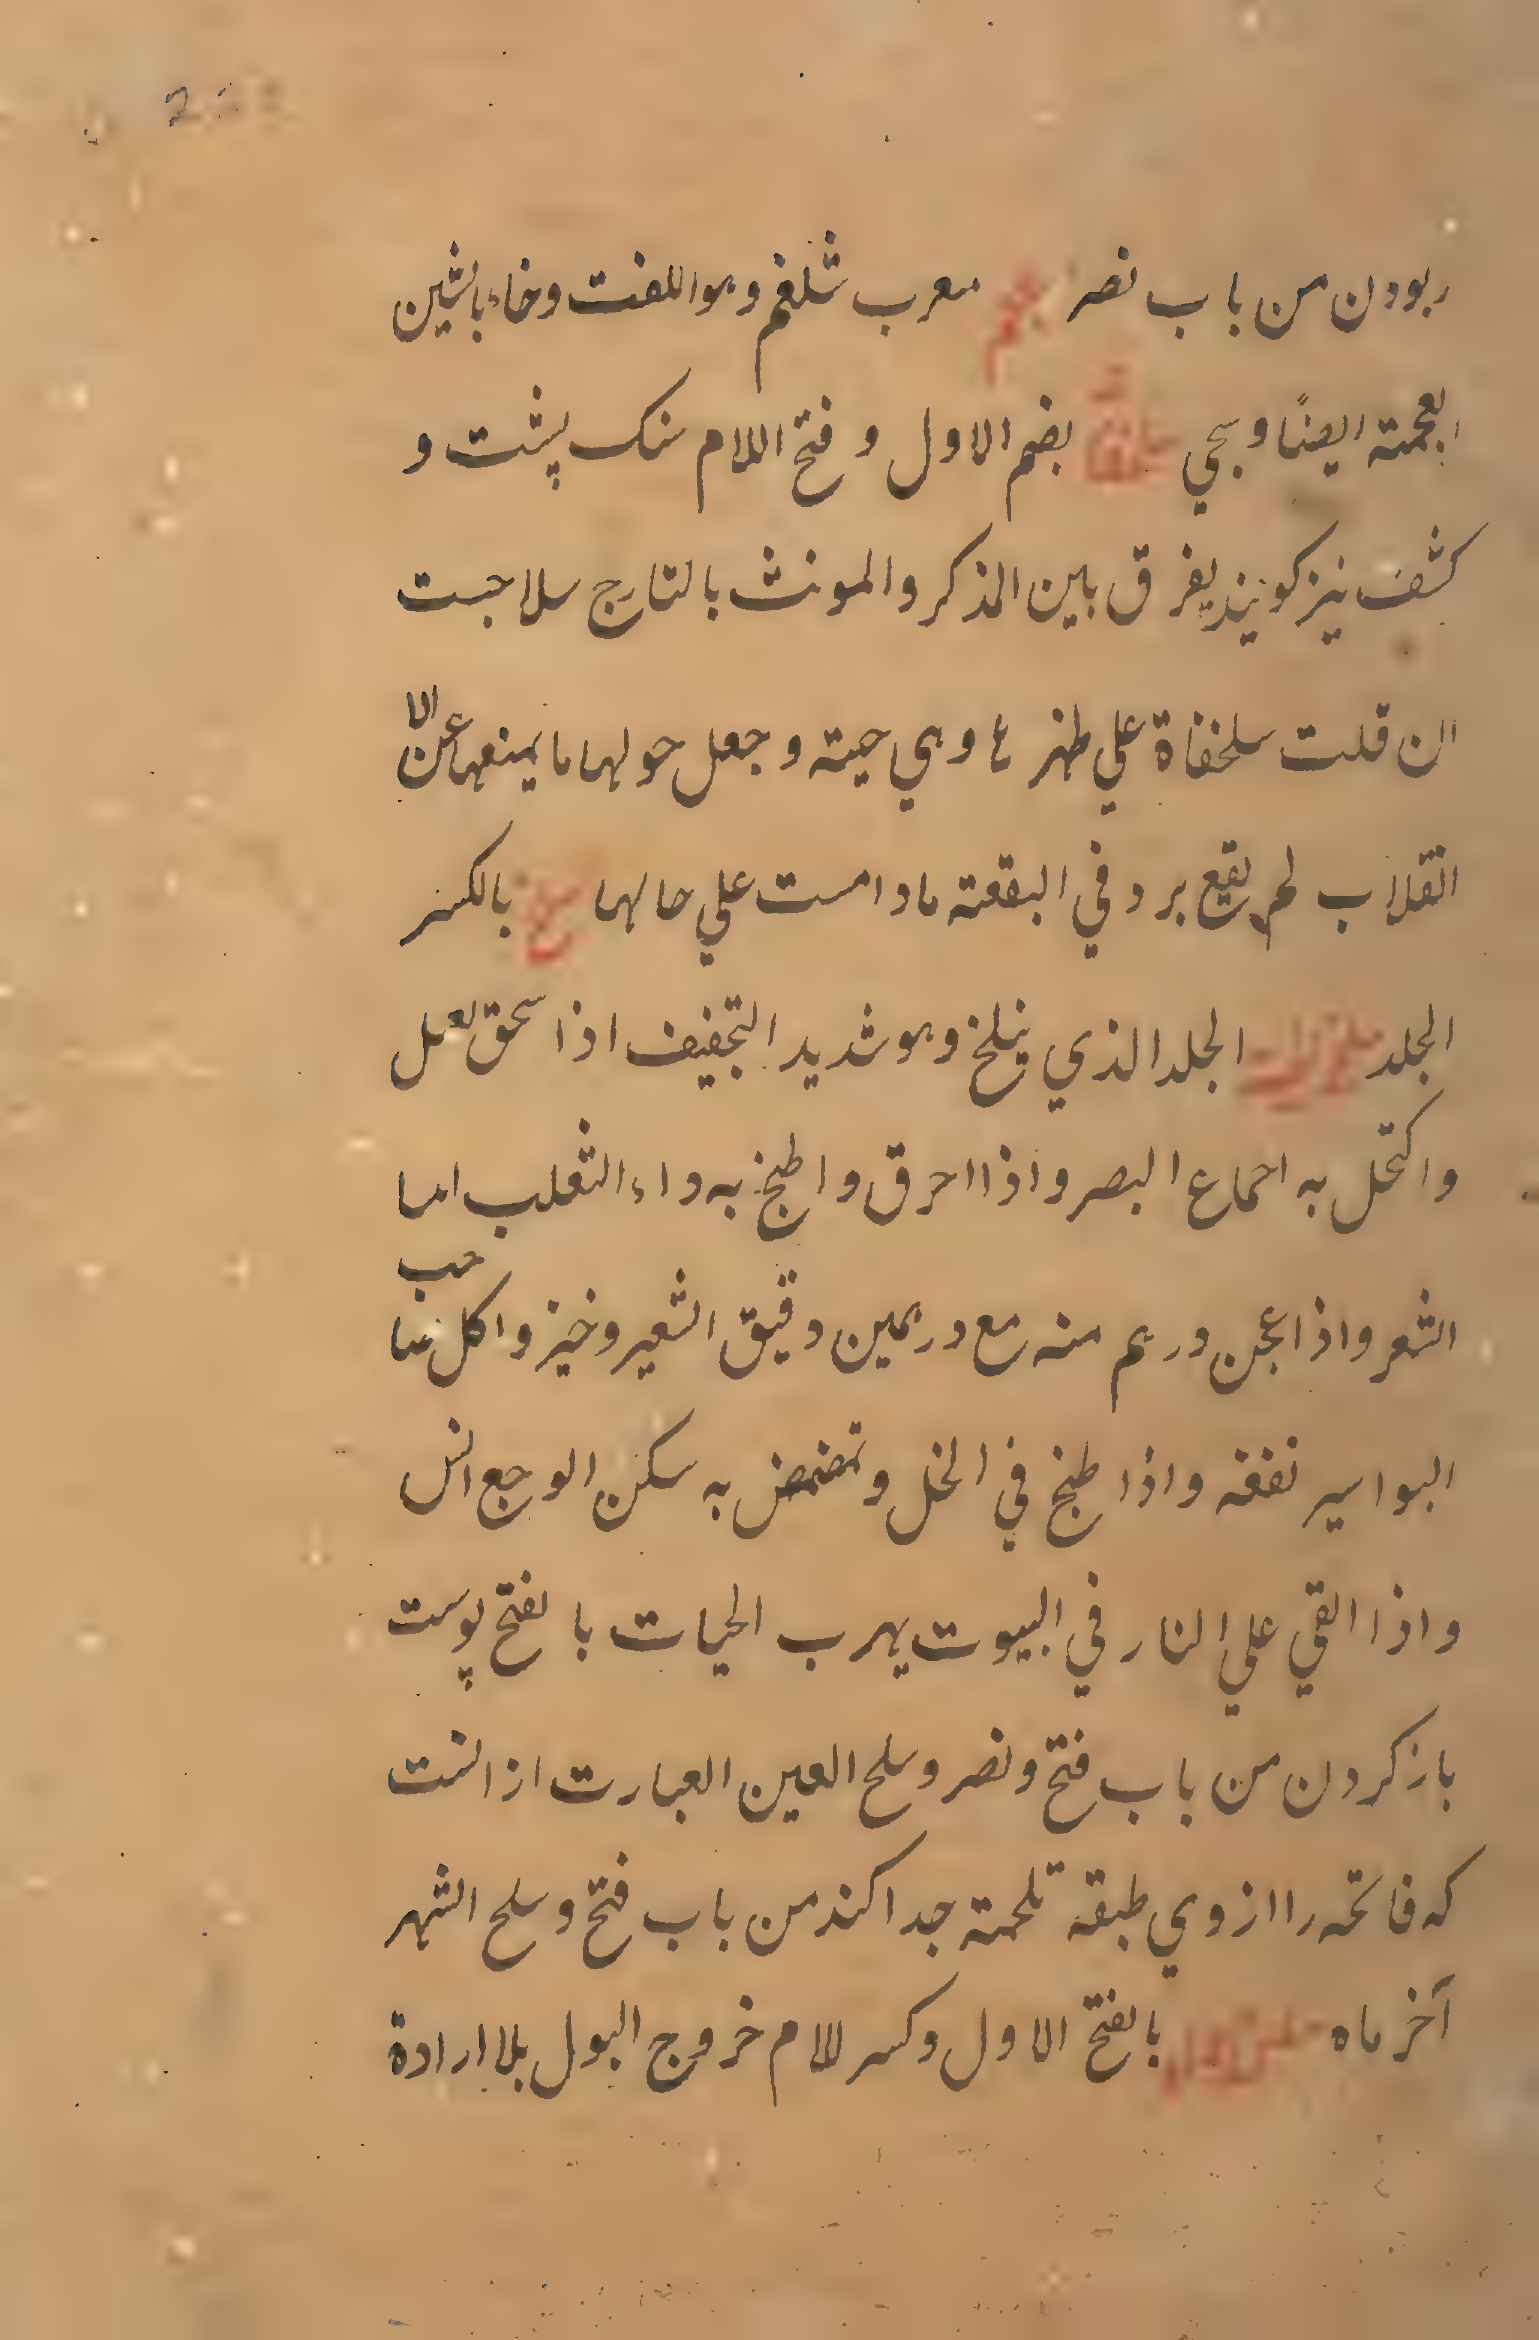 ربودن من باب نصر معرب شلغم وهو اللفت وخاء بالشين
العجمة ايضًا و سجي بضم الاول و فتح اللام سنك پشت و
كشف نيز كويند يفرق بين المذكر والمونث بالتا رج سلاحبت
ان قلت سلحفاة علي ظهرها وهي حية و جعل حولها ما يمنعها عن الا
انقلاب لم يقع برد في البقعة مادامت علي حالها سلخ بالكسر
الجلد الجلد الذي ينلخ وهو شديد التجفيف اذا سحق لعمل
واكتحل به احماع البصر واذا احرق واطبخ به داء الثعلب اما
الشعر واذا عجن درهم منه مع درهمين دقيق الشعير وخبز واكل صاحب
البواسير نفعه واذا طبخ في الخل وتمضمض به سكن الوجع
واذا القي علي النار في البيوت يهرب الحيات بالفتح پوست
باز كردن من باب فتح ونصر وسلح العين العبارت از انست
كه فاتحه را از وي طبقه تلحمة جدا كند من باب فتح و سلح الشهر
آخر ماه بالفتح الاول وكسر للام خروج البول بلا ارادة